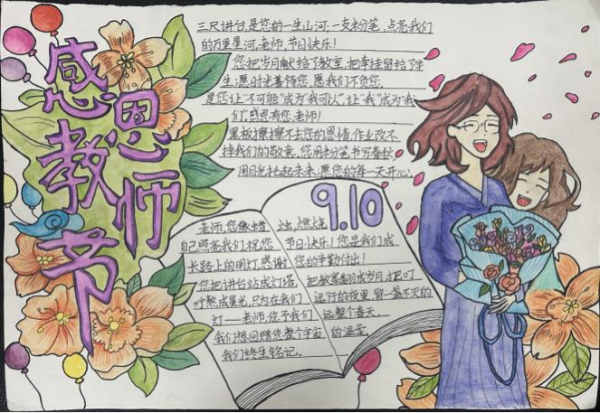 感恩教师节
三尺讲台,是您的一生山河;一支粉笔,点亮我们
的万里星河,老师,节日快乐!
您把岁月献给了教室,把牵挂留给了学
生;愿时光善待您,愿我们不负您.
是您让“不可能”成为“我可以”,让“我”成为“我
们”,感恩有您,老师!
黑板擦擦不去您的恩情,作业改不
掉我们的敬意,您用粉笔书写春秋
用目光托起未来,愿您的每一天开心.
9.10
老师,您像蜡烛,燃烧
自己照亮我们,祝您节日快乐!您是我们成
长路上的明灯,感谢您的辛勤付出!
您把讲台站成灯塔,把教案翻成岁月,把叮
咛酿成星光,只为在我们远行的夜里,留一盏不灭的
灯——老师,您予我们一远整个春天.
我们想回赠您整个宇宙的温柔
我们终生铭记.